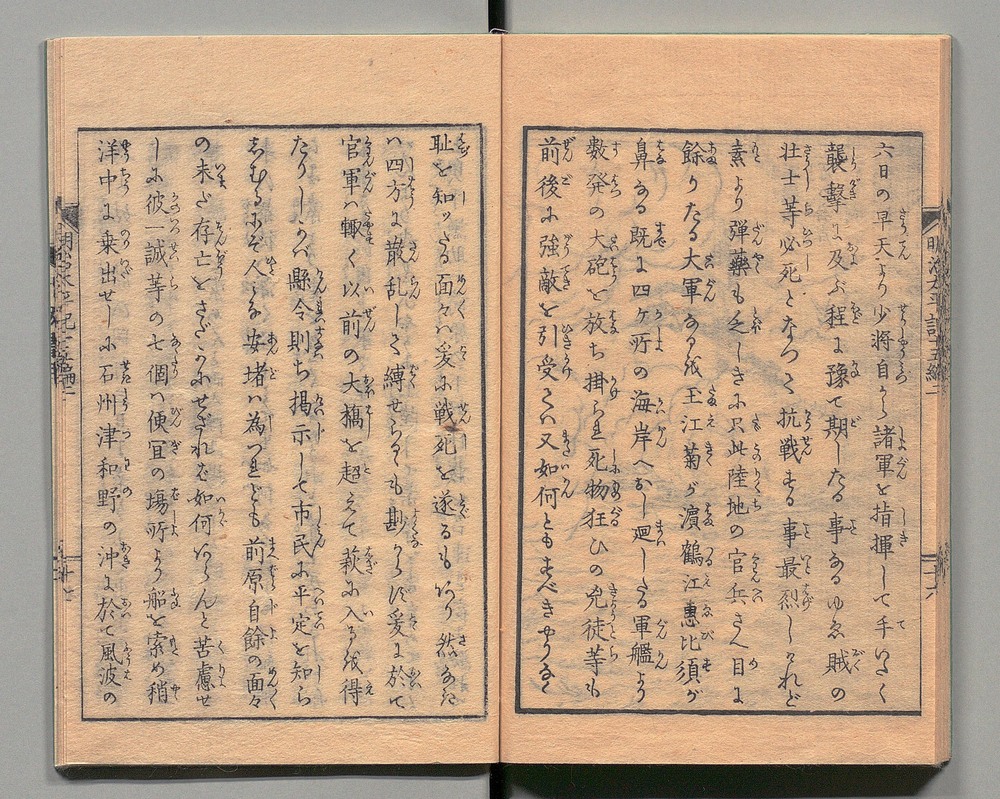 六日の早天より少将自から諸軍を指揮して手いたく
襲撃に及ぶ程に豫て期したる事あるゆゑ賊の
壮士等必死となつて抗戦する事最烈しけれど
素より弾藥も乏しきに只此陸地の官兵さへ目に
餘りたる大軍なるを玉江菊ヶ濵鶴江惠比須が
鼻なる既に四ヶ所の海岸へおし廻したる軍艦より
数発の大砲を放ち掛られ死物狂ひの兇徒等も
前後に強敵を引受ては又如何ともすべきやうなく
耻を知ッたる面々は爰に戦死を遂るもあり然なきは
は四方に散乱して縛せらるゝも尠からず爰に於て
官軍は輙く以前の大橋を超えて萩に入るを得
たりしかば縣令則ち掲示して市民に平定を知ら
しむるにぞ人みな安堵は為つれども前原自餘の面々
の未だ存亡をさだかにせざれば如何ならんと苦慮せ
しに彼一誠等の七個は便宜の塲所より船を索め稍
洋中に乗出せしに石州津和野の沖に於て風波の
明治太平記十五編二